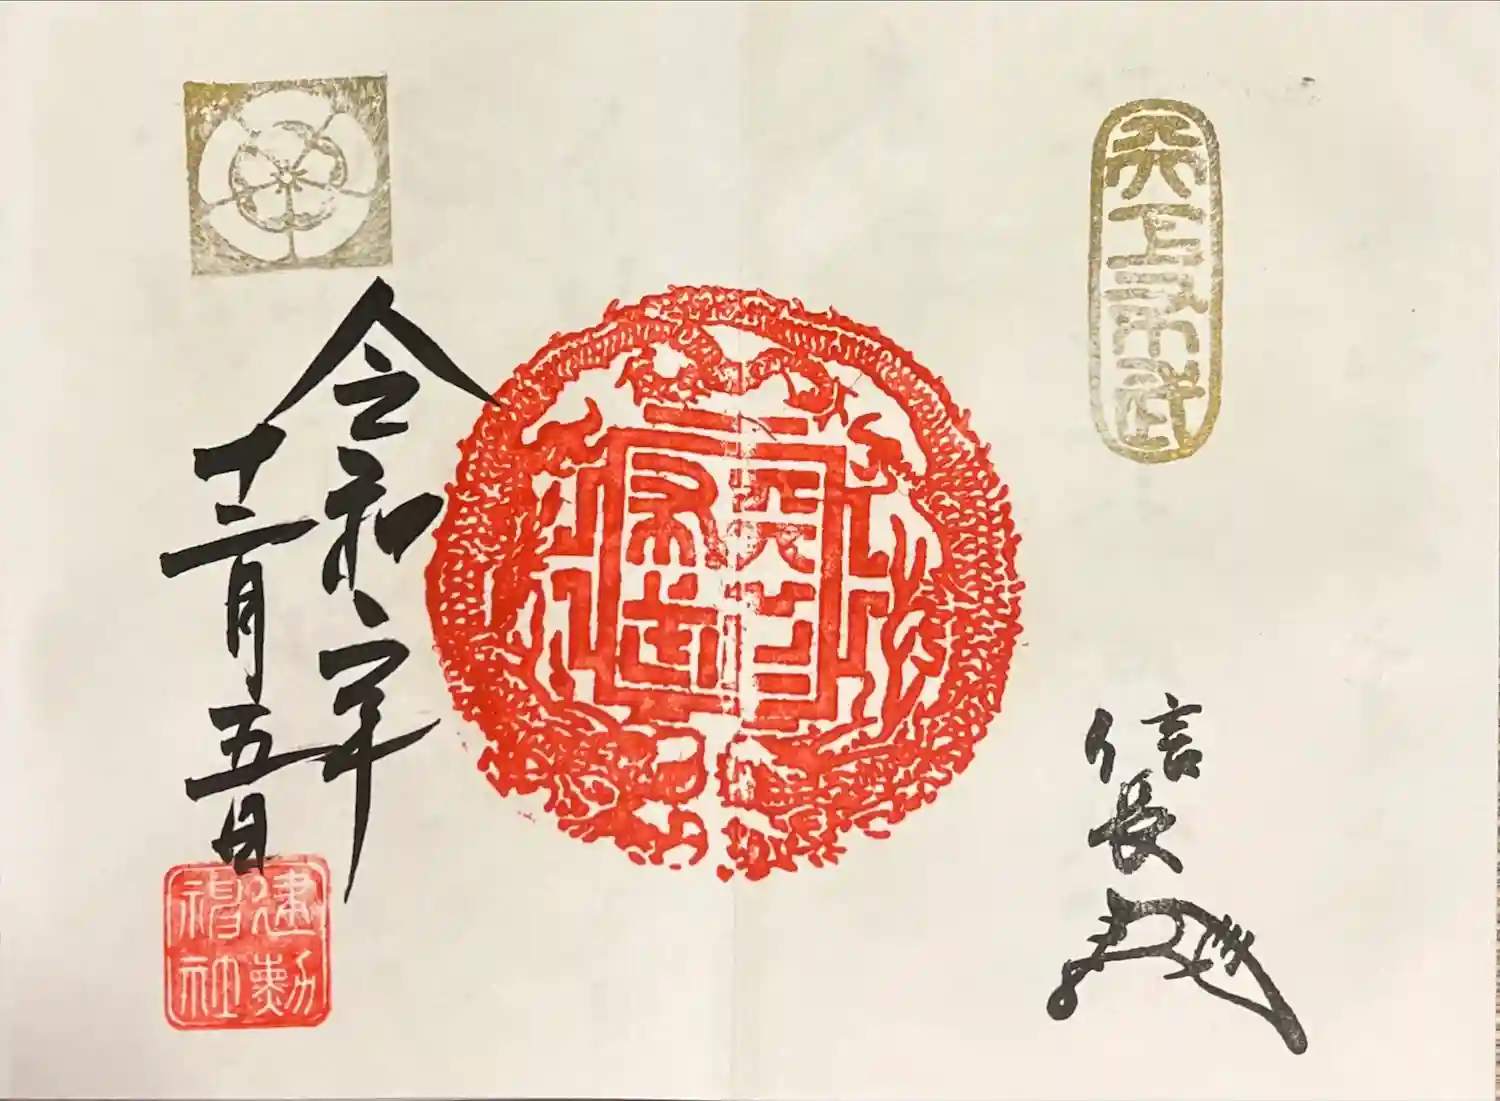 天下布武
信長
天下
布武
令和六年
十二月五日
建勲
神社